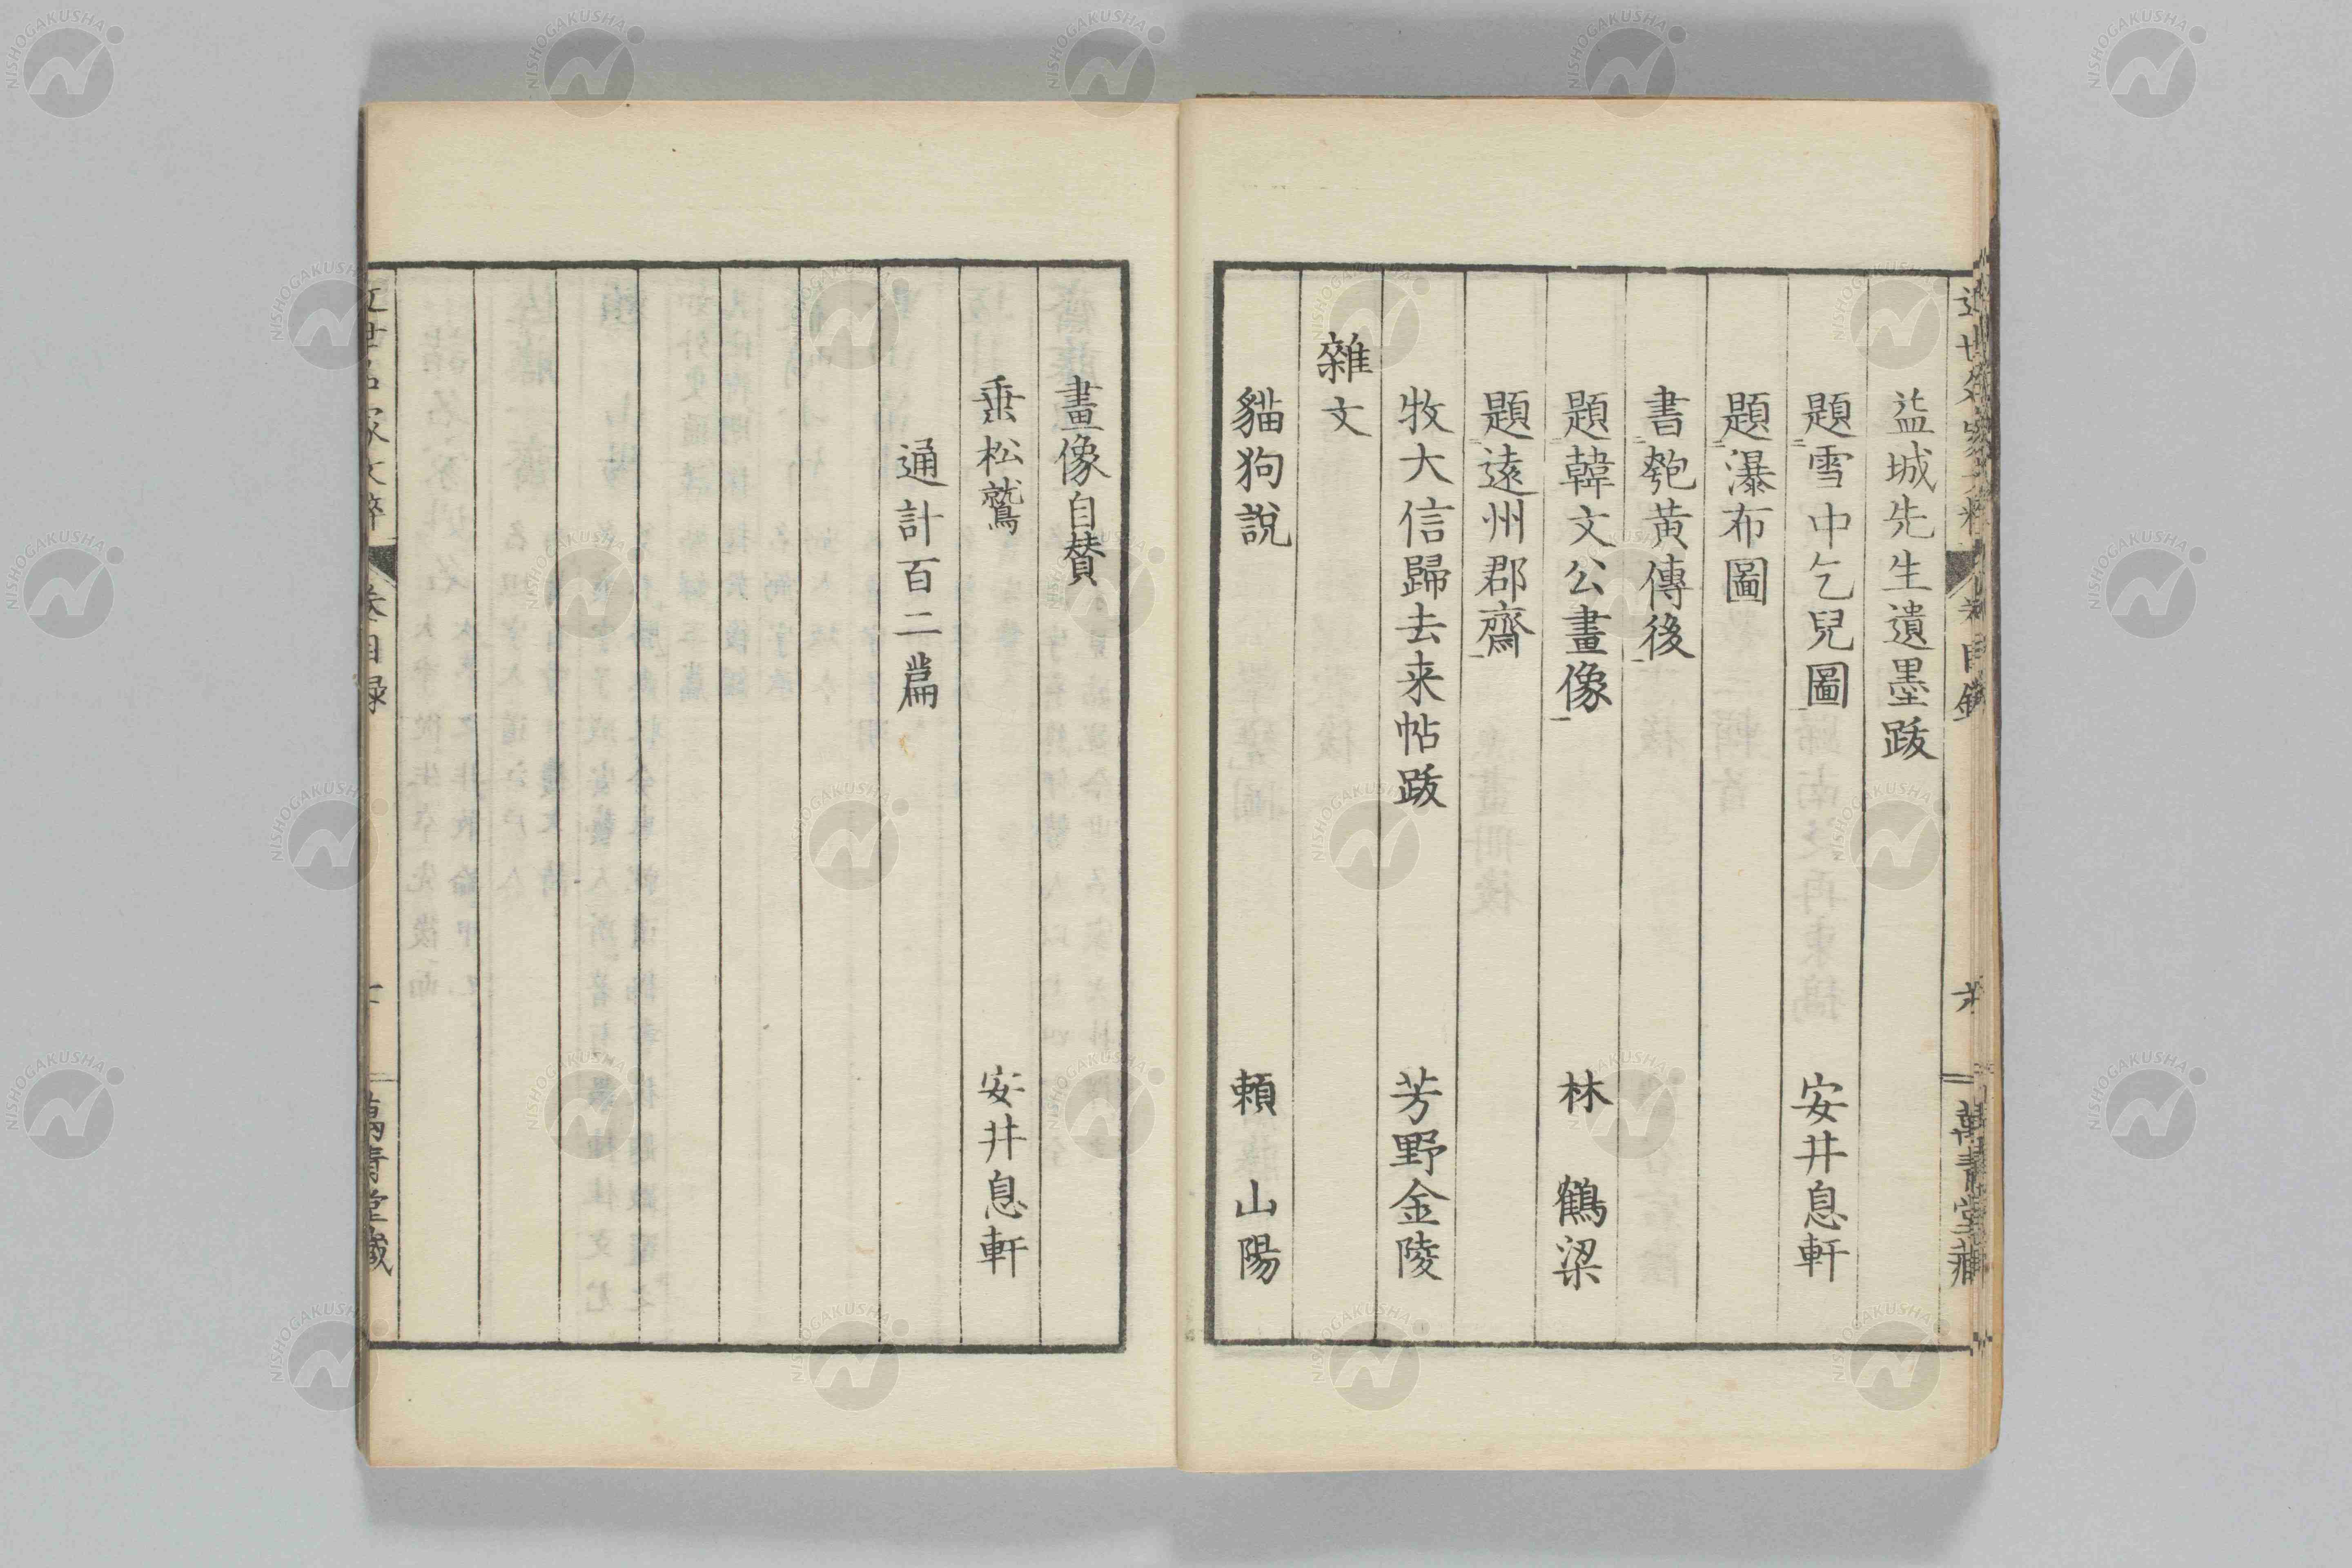 近世名家文粹 目錄 六 萬青堂藏
盆城先生遺墨跋
題雪中乞兒圖 安井息軒
題瀑布圖
書匏黄傳後
題韓文公畫像 林 鶴梁
題遠州郡齋
牧大信歸去来帖跋 芳野金陵
雜文
貓狗說 頼 山陽
畫像自賛
垂松鷲 安井息軒
通計百二篇
近世名家文粹 目録 七 萬青堂藏
NISHOGAKUSHA